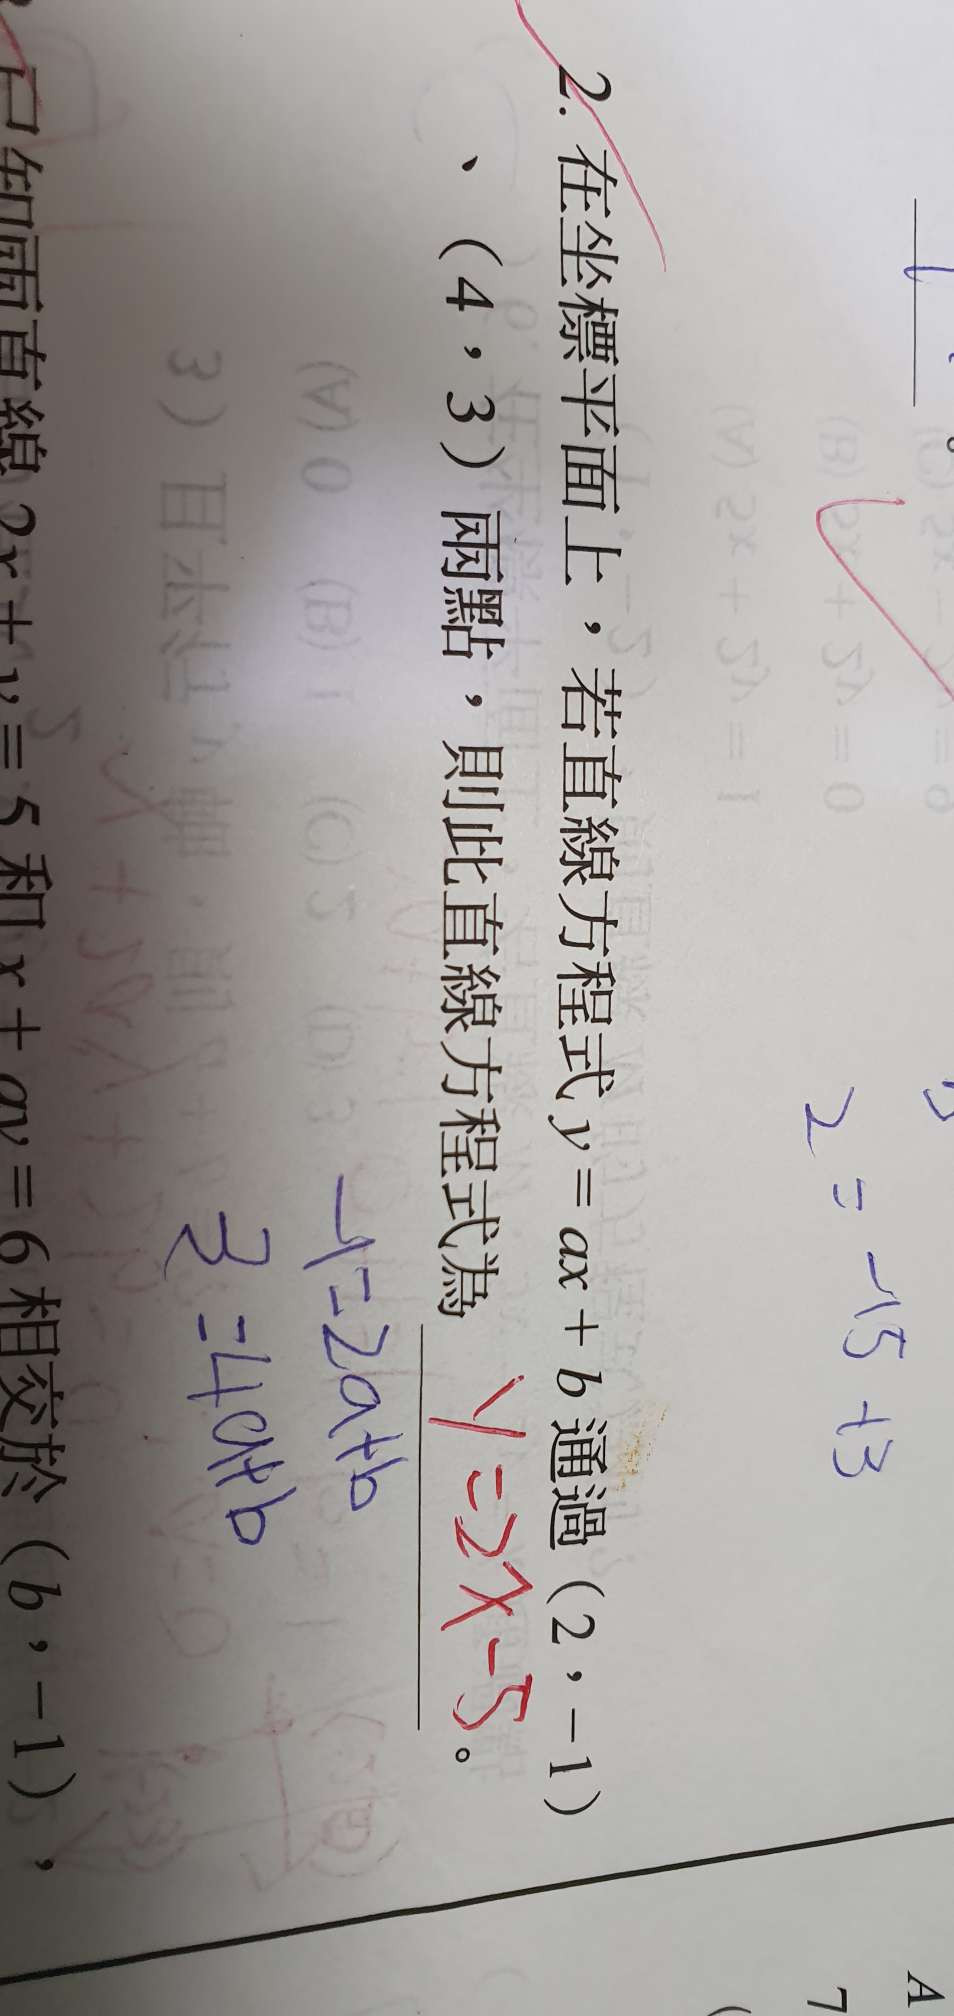 2 = -15 + 3
2. 在坐標平面上，若直線方程式 y = ax + b 通過（2，-1）
、（4，3）兩點，則此直線方程式為 y = 2x - 5 。
-1 = 2a + b
3 = 4a + b
已知兩直線 2x + y = 5 和 x + ay = 6 相交於（b，-1），
A
7
(